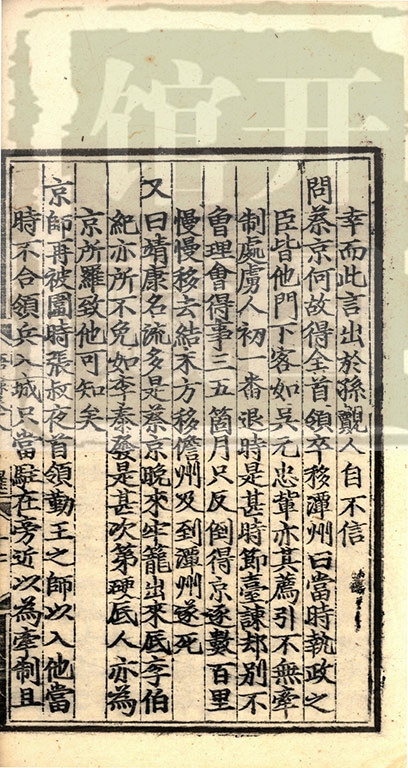 幸而此言出於孫覿人自不信
問蔡京何故得全首領卒移潭州曰當時執政之
臣皆他門下客如吳元忠輩亦其薦引不無牽
制處虜人初一番退時是甚時節臺諫却別不
曾理會得事三五箇月只反倒得京逐數百里
慢慢移去結末方移儋州及到潭州遂死
又曰靖康名流多是蔡京晚來牢籠出來底李伯
紀亦所不免如李泰發是甚次第硬底人亦為
京所羅致他可知矣
京師再被圍時張叔夜首領勤王之師以入他當
時不合領兵入城只當駐在旁近以為牽制且
开
馆